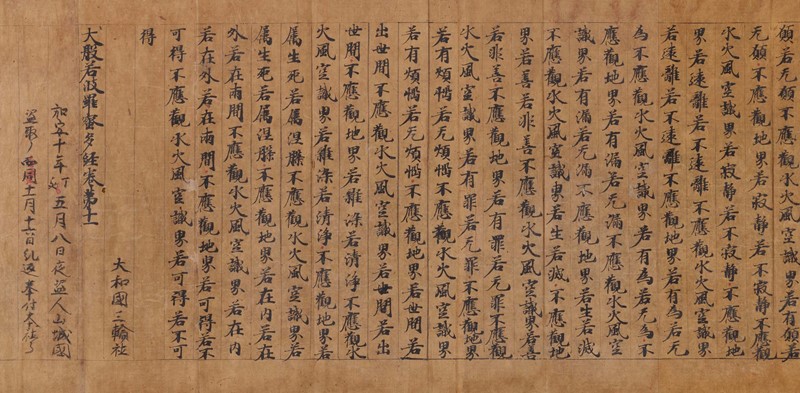 願若无願不應觀水火風空識界若有願若
无願不應觀地界若寂靜若不寂靜不應觀
水火風空識界若寂靜若不寂靜不應觀地
界若遠離若不遠離不應觀水火風空識界
若遠離若不遠離不應觀地界若有為若无
為不應觀水火風空識界若有為若无為不
應觀地界若有漏若无漏不應觀水火風空
識界若有漏若无漏不應觀地界若生若滅
不應觀水火風空識界若生若滅不應觀地
界若善若非善不應觀水火風空識界若善
若非善不應觀地界若有罪若无罪不應觀
水火風空識界若有罪若无罪不應觀地界
若有煩惱若无煩惱不應觀水火風空識界
若有煩惱若无煩惱不應觀地界若世間若
出世間不應觀水火風空識界若世間若出
世間不應觀地界若雜染若清淨不應觀水
火風空識界若雜染若清淨不應觀地界若
屬生死若屬涅槃不應觀水火風空識界若
屬生死若屬涅槃不應觀地界若在內若在
外若在兩間不應觀水火風空識界若在內
若在外若在兩間不應觀地界若可得若不
可得不應觀水火風空識界若可得若不可
得
大和國三輪社
大般若波羅蜜多經卷第十一
十年五月八日夜盗人山城國
盗取了同十一月十六日返奉付